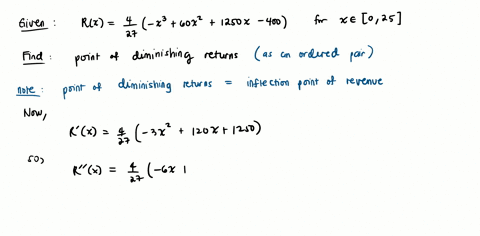 Given : R(x) = 4/27 (-x³ + 60x² + 1250x - 400) for x ∈ [0, 25]
Find : point of diminishing returns (as an ordered pair)
note : point of diminishing returns = inflection point of revenue
Now,
R'(x) = 4/27 (-3x² + 120x + 1250)
so,
R''(x) = 4/27 (-6x